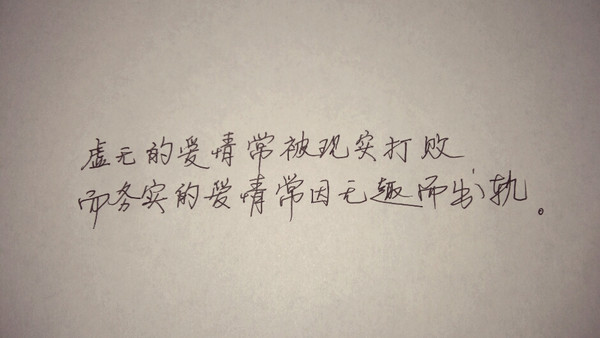 虚无的爱情常被现实打败
而务实的爱情常因无趣而出轨。